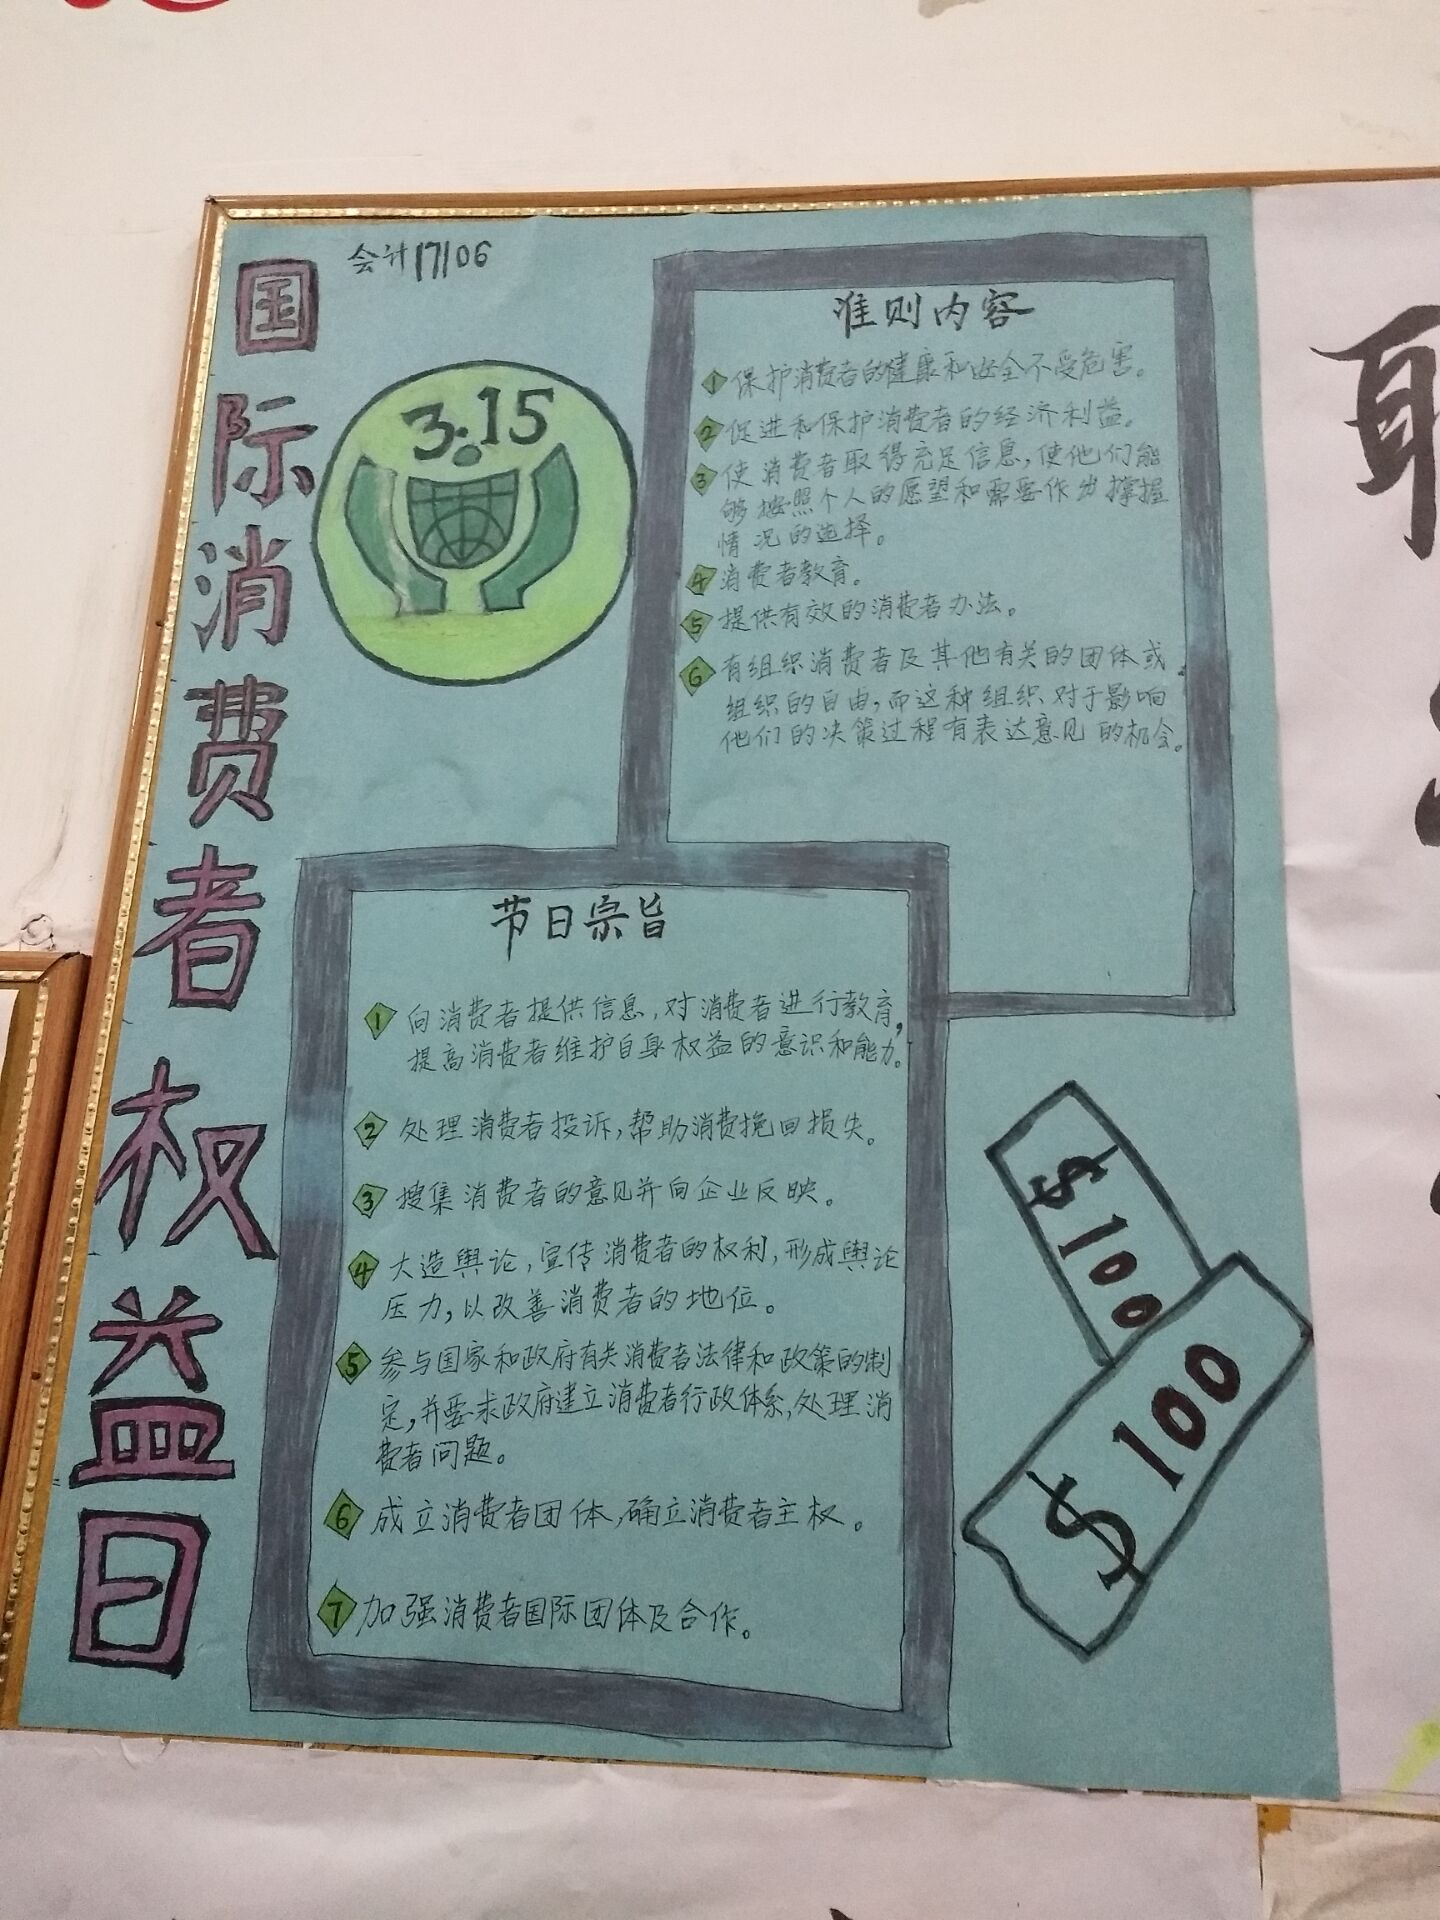 会计17106
国际消费者权益日
3.15
准则内容
1 保护消费者的健康和安全不受危害。
2 促进和保护消费者的经济利益。
3 使消费者取得充足信息,使他们能
够按照个人的愿望和需要作出掌握
情况的选择。
4 消费者教育。
5 提供有效的消费者办法。
6 有组织消费者及其他有关的团体或
组织的自由,而这种组织对于影响
他们的决策过程有表达意见的机会。
节日宗旨
1 向消费者提供信息,对消费者进行教育,
提高消费者维护自身权益的意识和能力。
2 处理消费者投诉,帮助消费挽回损失。
3 搜集消费者的意见并向企业反映。
4 大造舆论,宣传消费者的权利,形成舆论
压力,以改善消费者的地位。
5 参与国家和政府有关消费者法律和政策的制
定,并要求政府建立消费者行政体系,处理消
费者问题。
6 成立消费者团体,确立消费者主权。
7 加强消费者国际团体及合作。
$100
$100